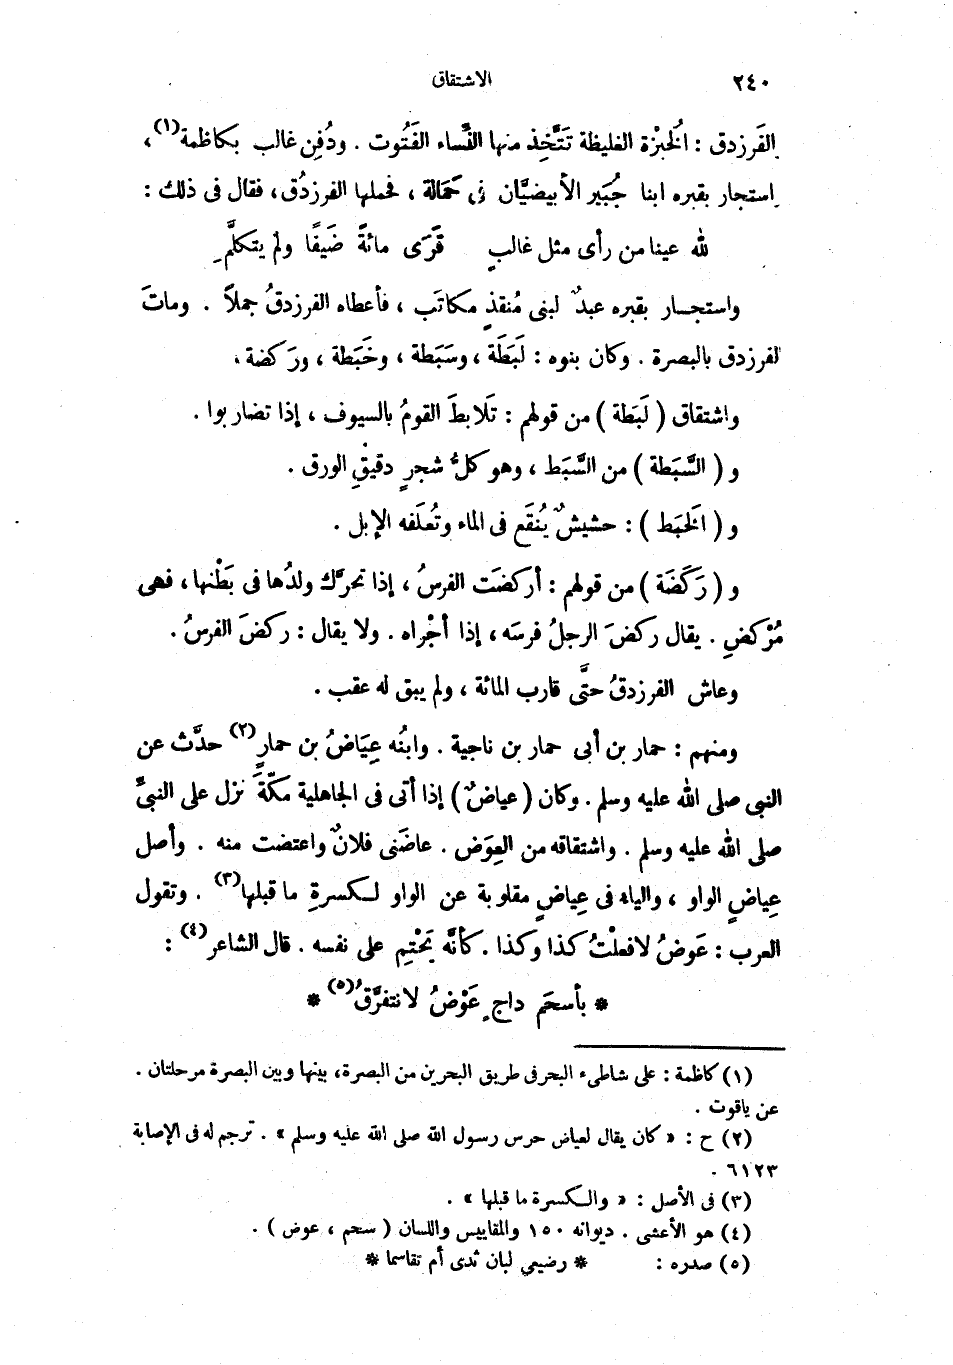 ٢٤٠
الاشتقاق
الفَرزدق : الُخبزْة الغليظة تَتَّخِذ منها النِّساء الفَتُوت . ودُفِن غالب بكاظمة(١)،
استجار بقبره ابنا جُبَير الأبيضيَّان فى حَمَالة ، فحملها الفرزدُق، فقال فى ذلك :
لله عينا من رأى مثل غالبٍ قَرَى مائةً ضَيفًا ولم يتكلَّمِ
واستجار بقبره عبدٌ لبنى مُنقذٍ مكاتَب ، فأعطاه الفرزدقُ جملاً . وماتَ
الفرزدق بالبصرة . وكان بنوه : لَبَطَة ، وسَبَطة ، وخَبَطة ، ورَكضة .
واشتقاق ( لَبَطة ) من قولهم : تَلابطَ القومُ بالسيوف ، إذا تضاربوا .
و ( السَّبَطة ) من السَّبَط ، وهو كلُّ شجرٍ دقيقِ الورق .
و ( الَخبَط ) : حشيشٌ يُنقَع فى الماء وتُعلَفه الإبل .
و ( رَكَضَة ) من قولهم : أركضَت الفرسُ ، إذا تحرَّك ولدُها فى بَطْنها ، فهى
مُرْكضٍ . يقال ركضَ الرجلُ فرسَه ، إذا أجْراه . ولا يقال : ركضَ الفرسُ .
وعاش الفرزدقُ حتَّى قارب المائة ، ولم يبق له عقب .
ومنهم : حمار بن أبى حمار بن ناجية . وابنُه عِيَاضُ بن حمارٍ(٢) حدَّث عن
النبى صلى الله عليه وسلم . وكان ( عياضٌ ) إذا أتى فى الجاهلية مكّةَ نزل على النبىِّ
صلى الله عليه وسلم . واشتقاقه من العِوَض . عاضَنى فلانٌ واعتضت منه . وأصل
عِياضٍ الواو ، والياء فى عِياضٍ مقلوبة عن الواو لكسرةِ ما قبلها(٣) . وتقول
العرب : عَوضُ لا فعلْتُ كذا وكذا . كأنَّه يَحْتِم على نفسه . قال الشاعر(٤) :
* بأسحَم داجٍ عَوْضُ لا نتفرَّقُ(٥) *
(١) كاظمة : على شاطىء البحر فى طريق البحرين من البصرة، بينها وبين البصرة مرحلتان .
عن ياقوت .
(٢) ح : « كان يقال لعياض حرس رسول الله صلى الله عليه وسلم » . ترجم له فى الإصابة
٦١٢٣ .
(٣) فى الأصل : « والكسرة ما قبلها » .
(٤) هو الأعشى . ديوانه ١٥٠ والمقاييس واللسان ( سحم ، عوض ) .
(٥) صدره : * رضيعي لبان ثدى أم تقاسما *